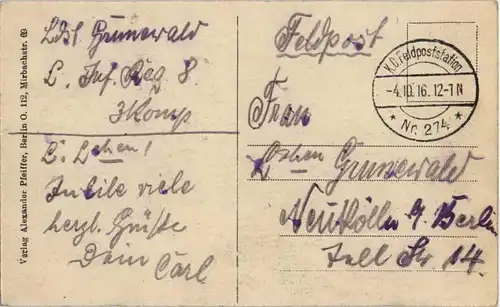 Verlag Alexander Pfeiffer, Berlin O. 112, Mirbachstr. 69
Ldst Grunewald
L. Inf. Reg 8
3 Komp
L. Lehen!
In Eile viele
herzl. Grüße
Dein
Carl
Feldpost
K.D. Feldpoststation
-4.10.16. 12-1 N
* Nr. 274 *
Frau
Grunewald
Neukölln b/ Berlin
Str 14.